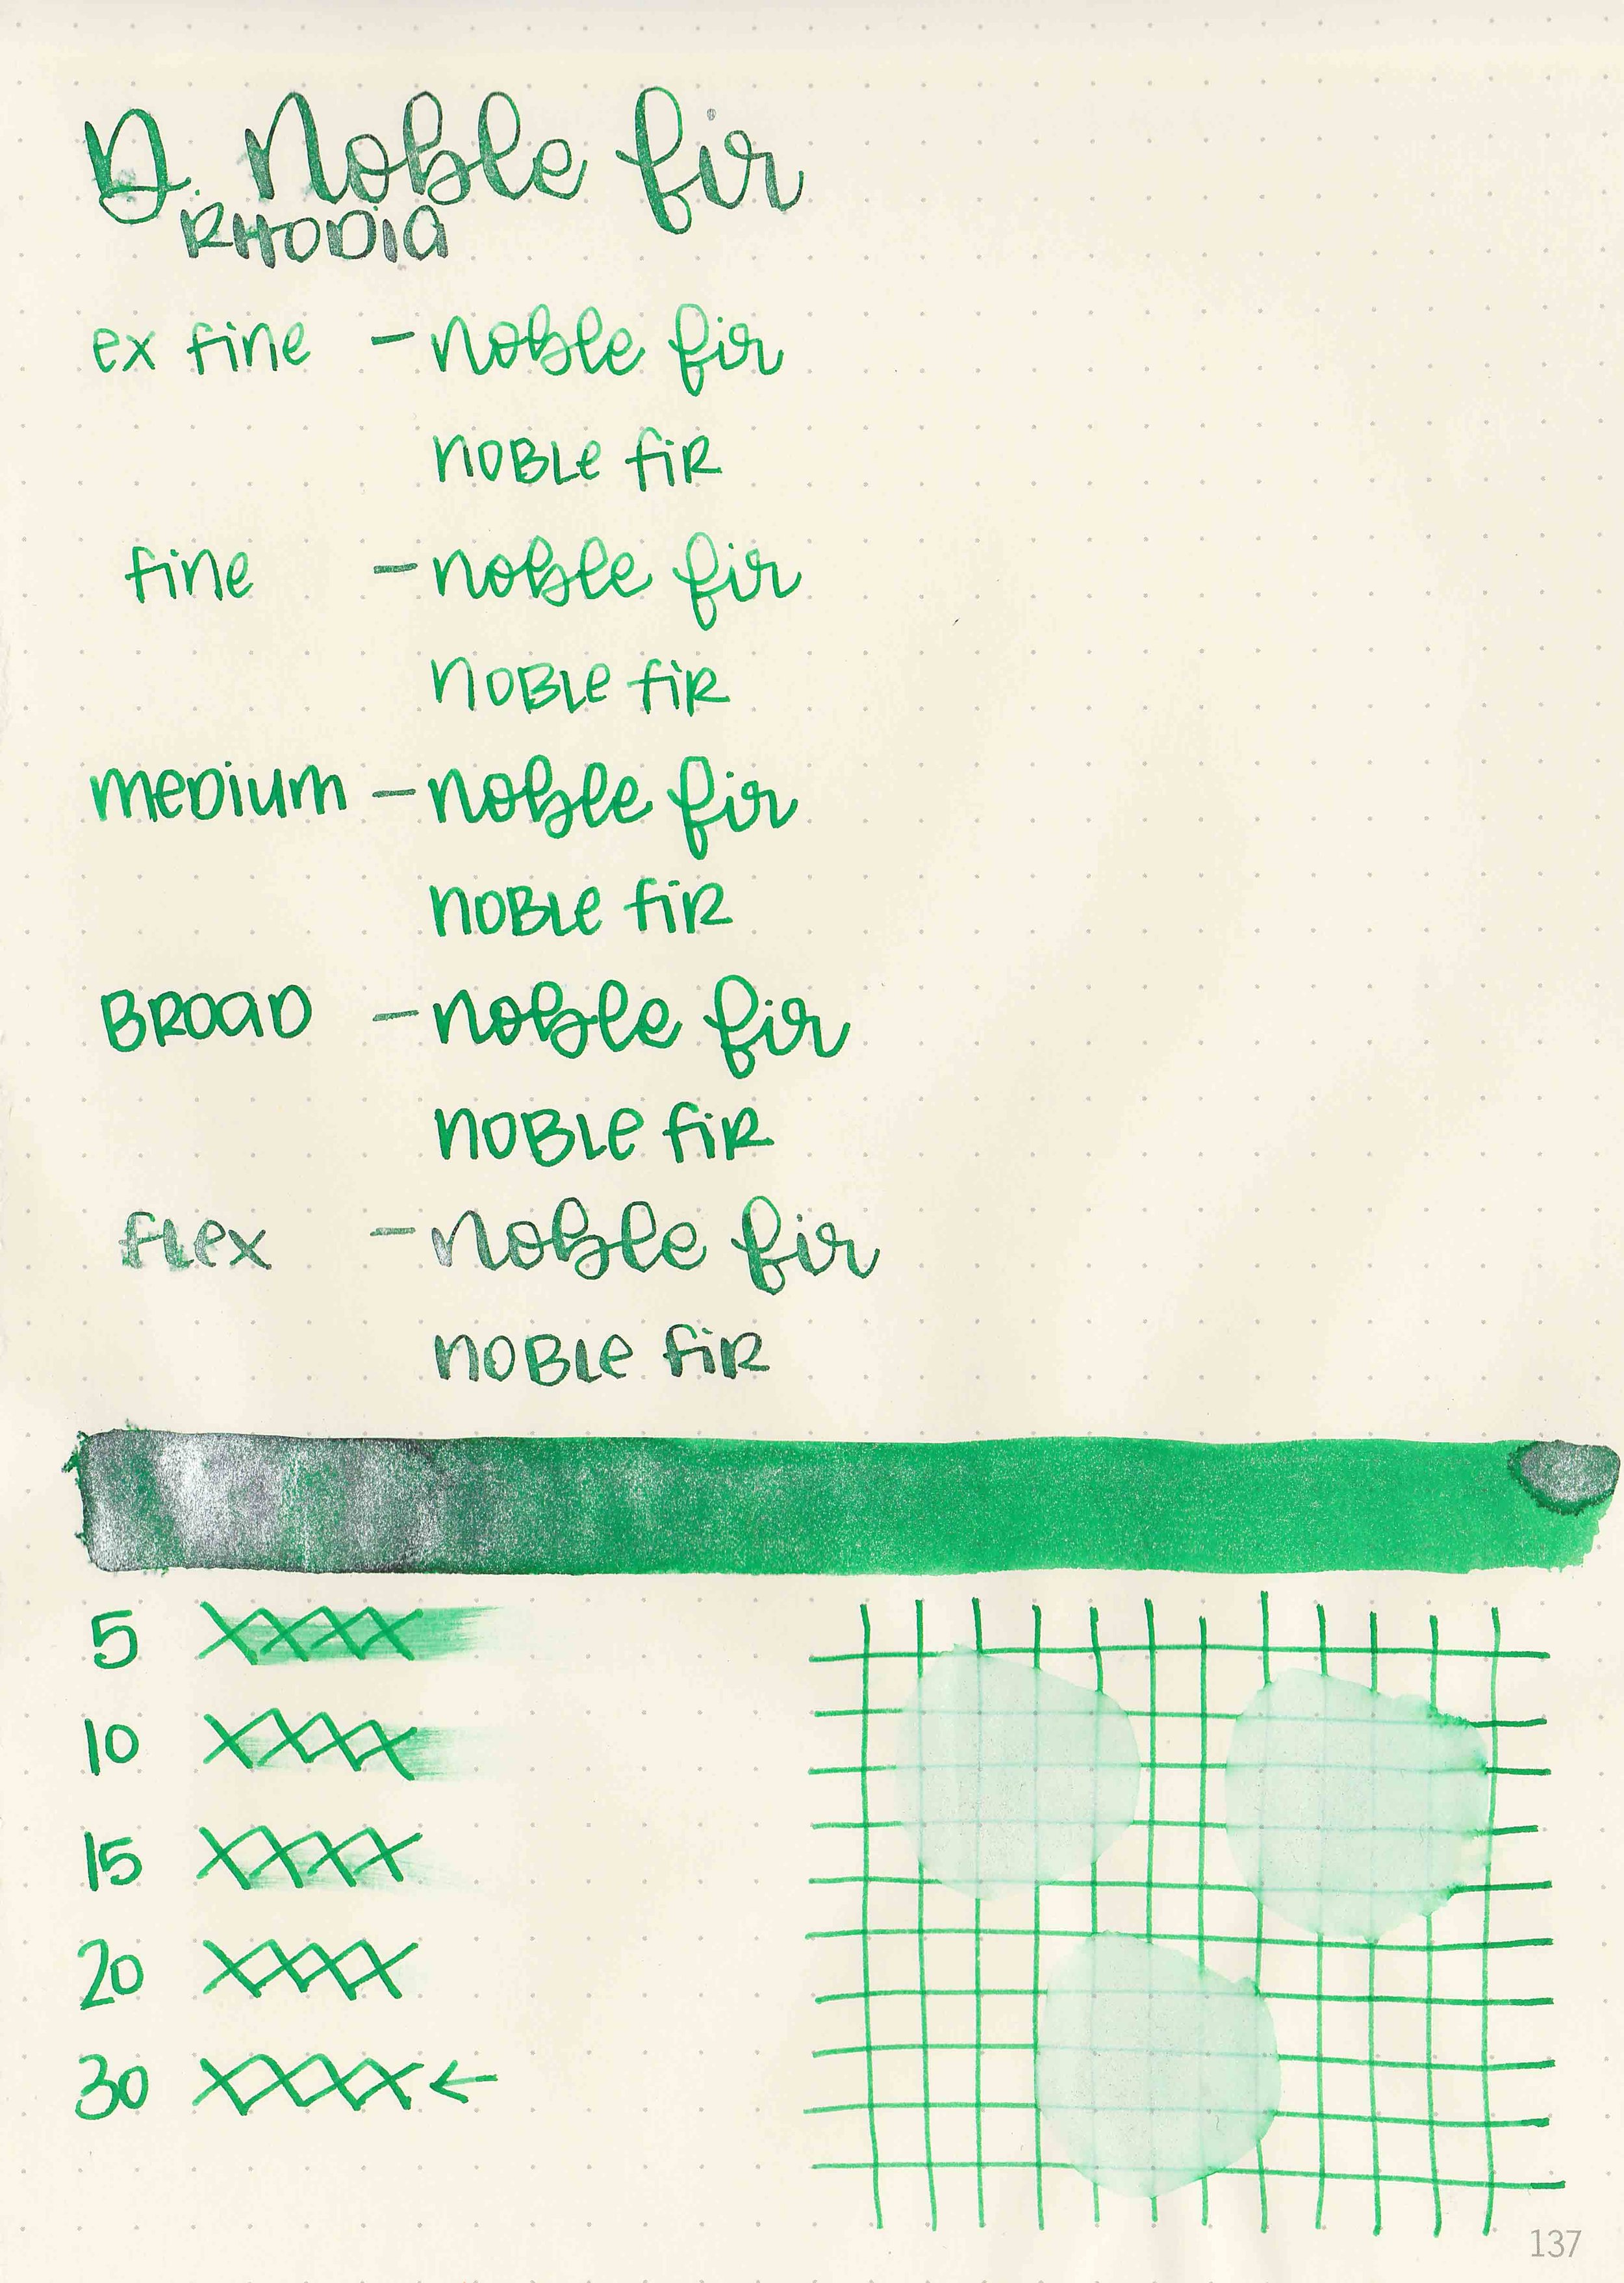 D. Noble fir
RHODIA
ex fine - noble fir
NOBLE fir
fine - noble fir
NOBLE fir
medium - noble fir
NOBLE fir
BROAD - noble fir
NOBLE fir
flex - noble fir
NOBLE fir
5 XXXX
10 XXXX
15 XXXX
20 XXXX
30 XXXX ←
137